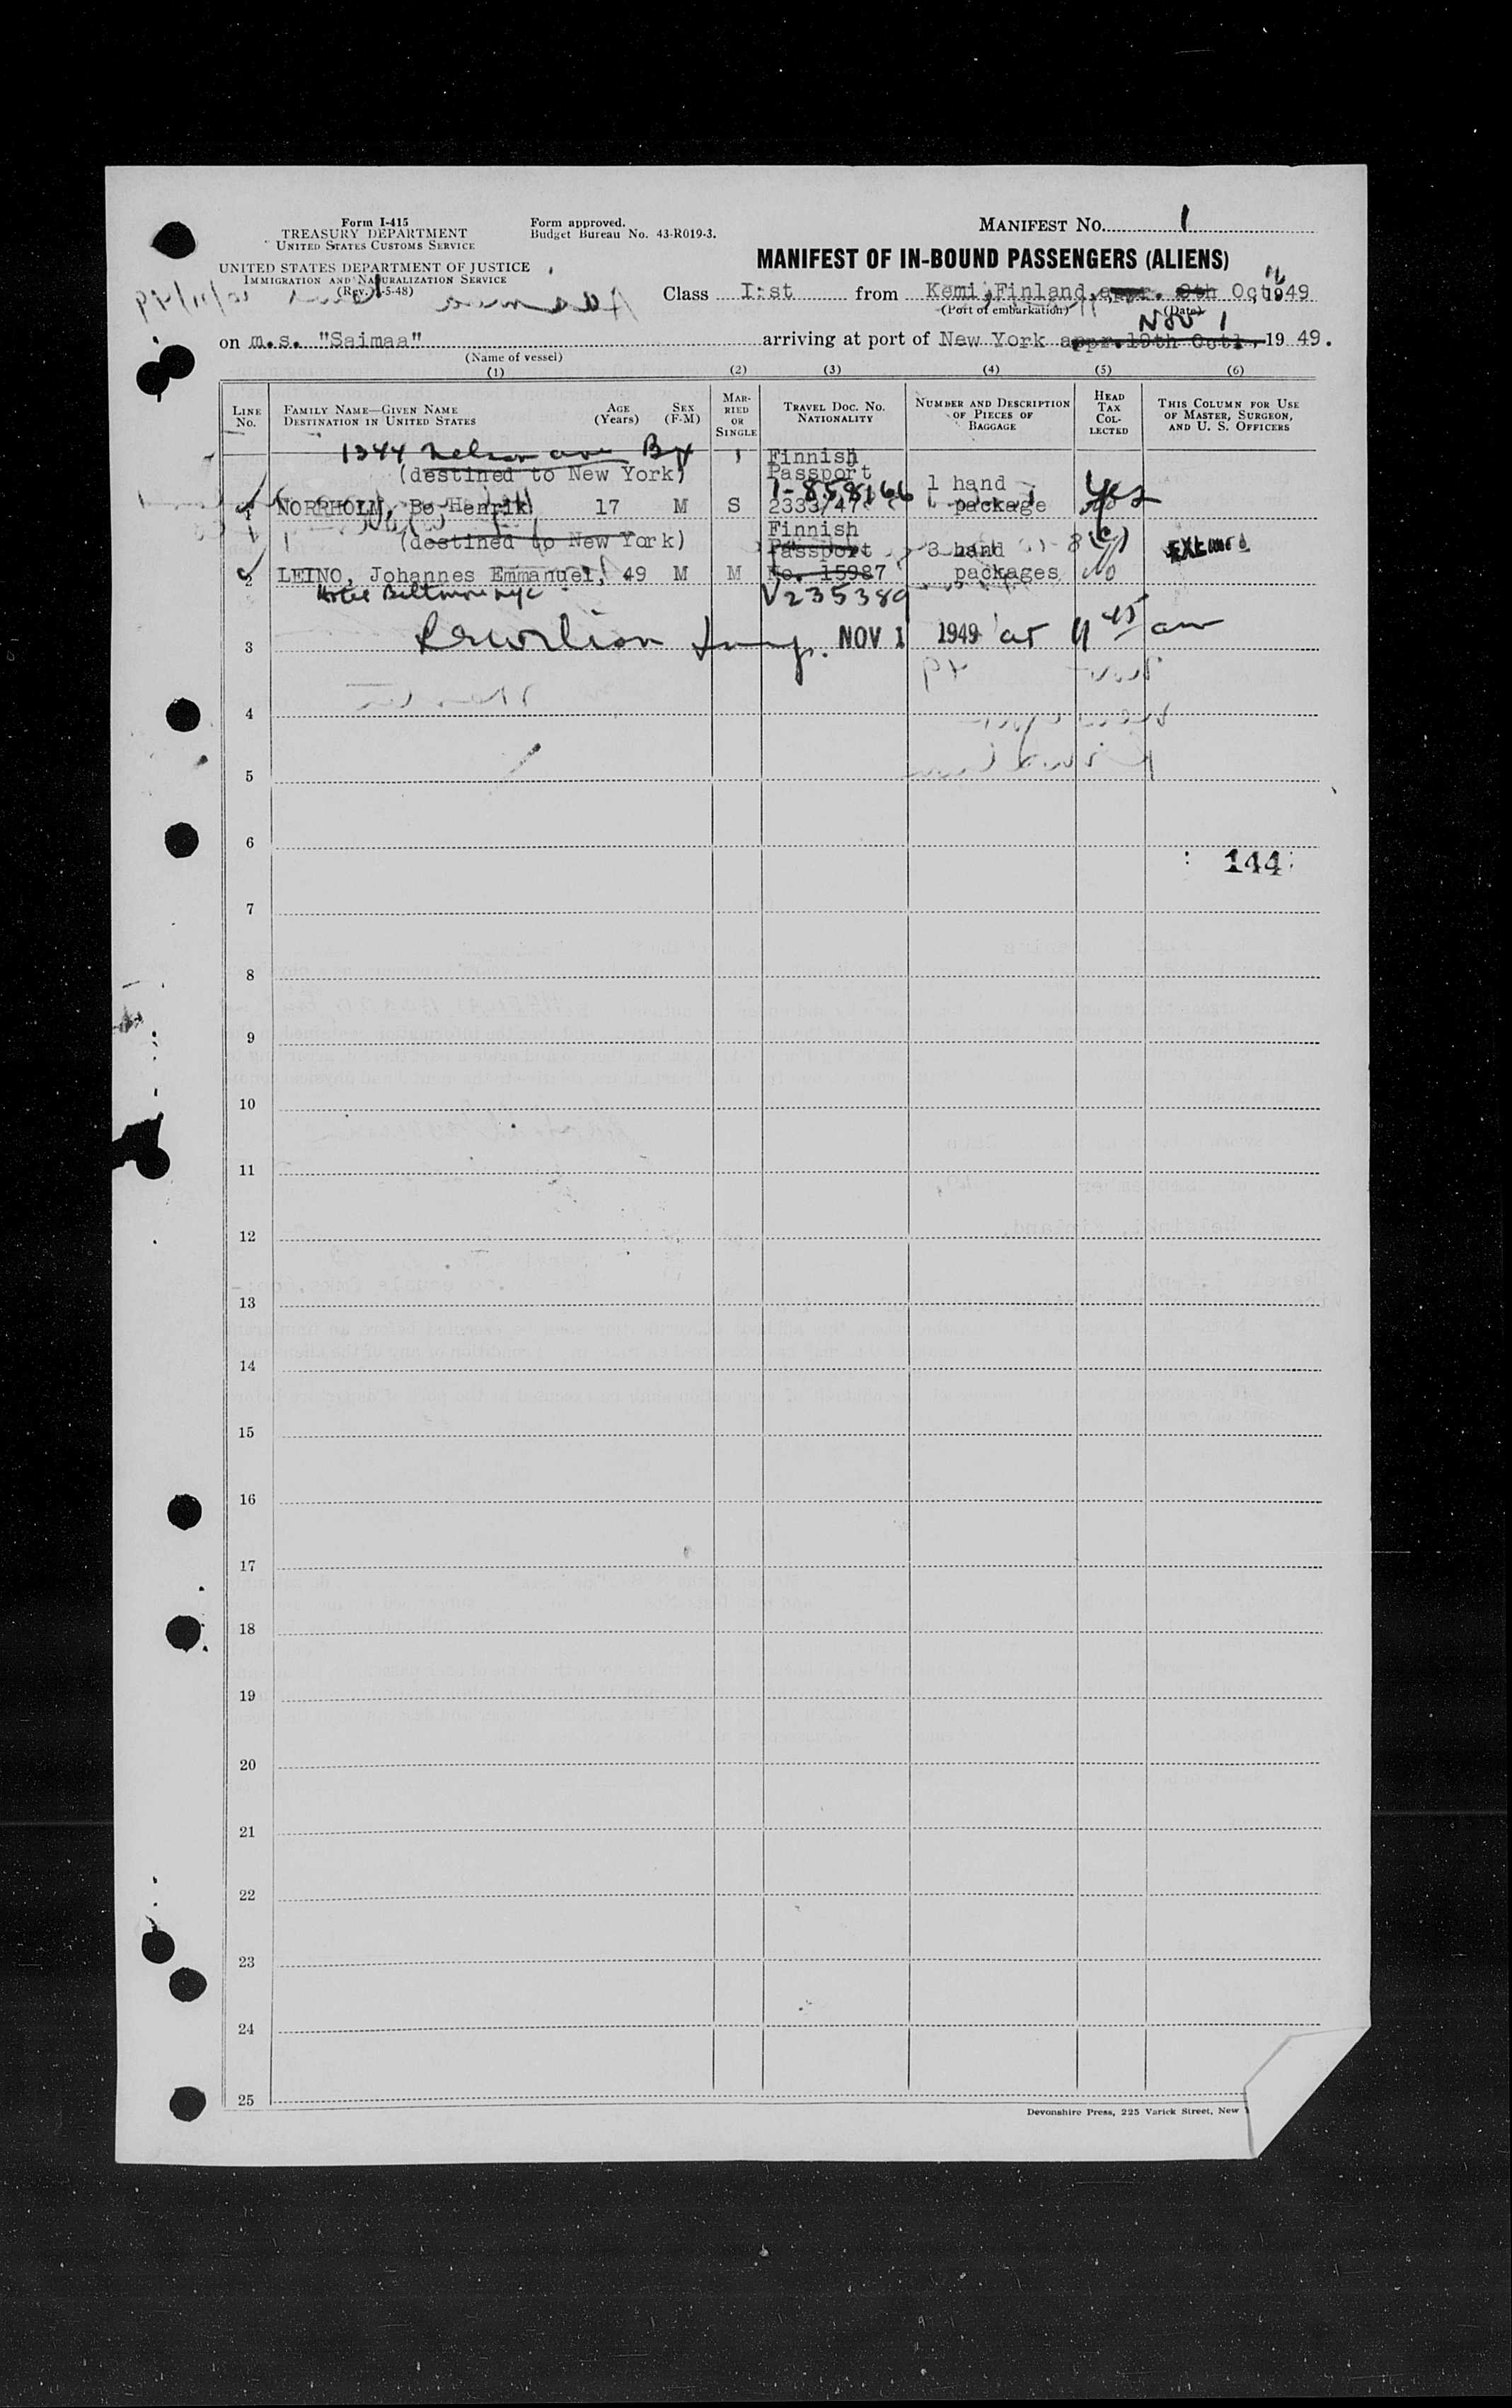 Form I-415
TREASURY DEPARTMENT
UNITED STATES CUSTOMS SERVICE
UNITED STATES DEPARTMENT OF JUSTICE
IMMIGRATION AND NATURALIZATION SERVICE
(Rev. 1-5-48)
Form approved.
Budget Bureau No. 43-R019-3.
MANIFEST NO. 1
MANIFEST OF IN-BOUND PASSENGERS (ALIENS)
Class I:st from Kemi, Finland, appr. 8th Oct 1949
(Port of embarkation) (Date)
Nov 1
on m.s. "Saimaa" arriving at port of New York appr. 19th Oct., 1949.
(Name of vessel)
(1) (2) (3) (4) (5) (6)
LINE No. FAMILY NAME—GIVEN NAME DESTINATION IN UNITED STATES AGE (Years) SEX (F-M) MARRIED OR SINGLE TRAVEL DOC. NO. NATIONALITY NUMBER AND DESCRIPTION OF PIECES OF BAGGAGE HEAD TAX COLLECTED THIS COLUMN FOR USE OF MASTER, SURGEON, AND U. S. OFFICERS
1344 Nelson ave Bx Finnish
(destined to New York) Passport 1 hand Yes
1-858166
NORRHOLM, Bo Henrik 17 M S 2333/47 package
Finnish
(destined to New York) Passport 3 hand
2 LEINO, Johannes Emmanuel, 49 M M No. 15987 packages No
Hotel Biltmore NYC V235389
3 NOV 1 1949 at 9 45 am
4
5
6
144
7
8
9
10
11
12
13
14
15
16
17
18
19
20
21
22
23
24
25
Devonshire Press, 225 Varick Street, New